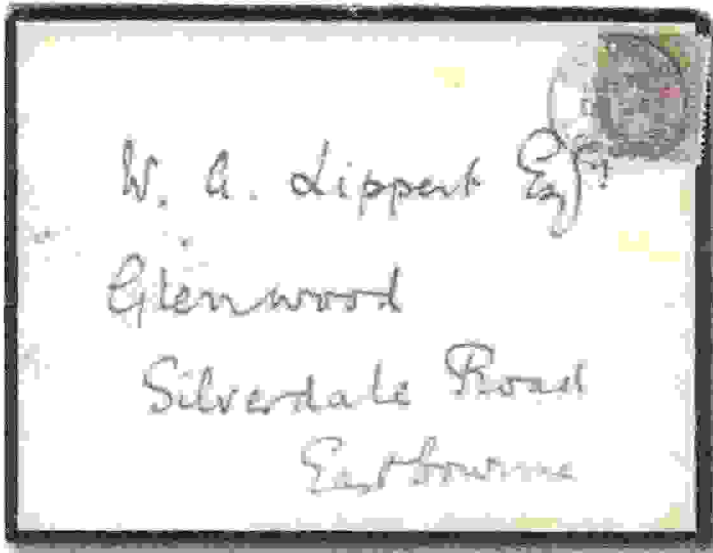 W. A. Lippert Esqr.
Glenwood
Silverdale Road
Eastbourne